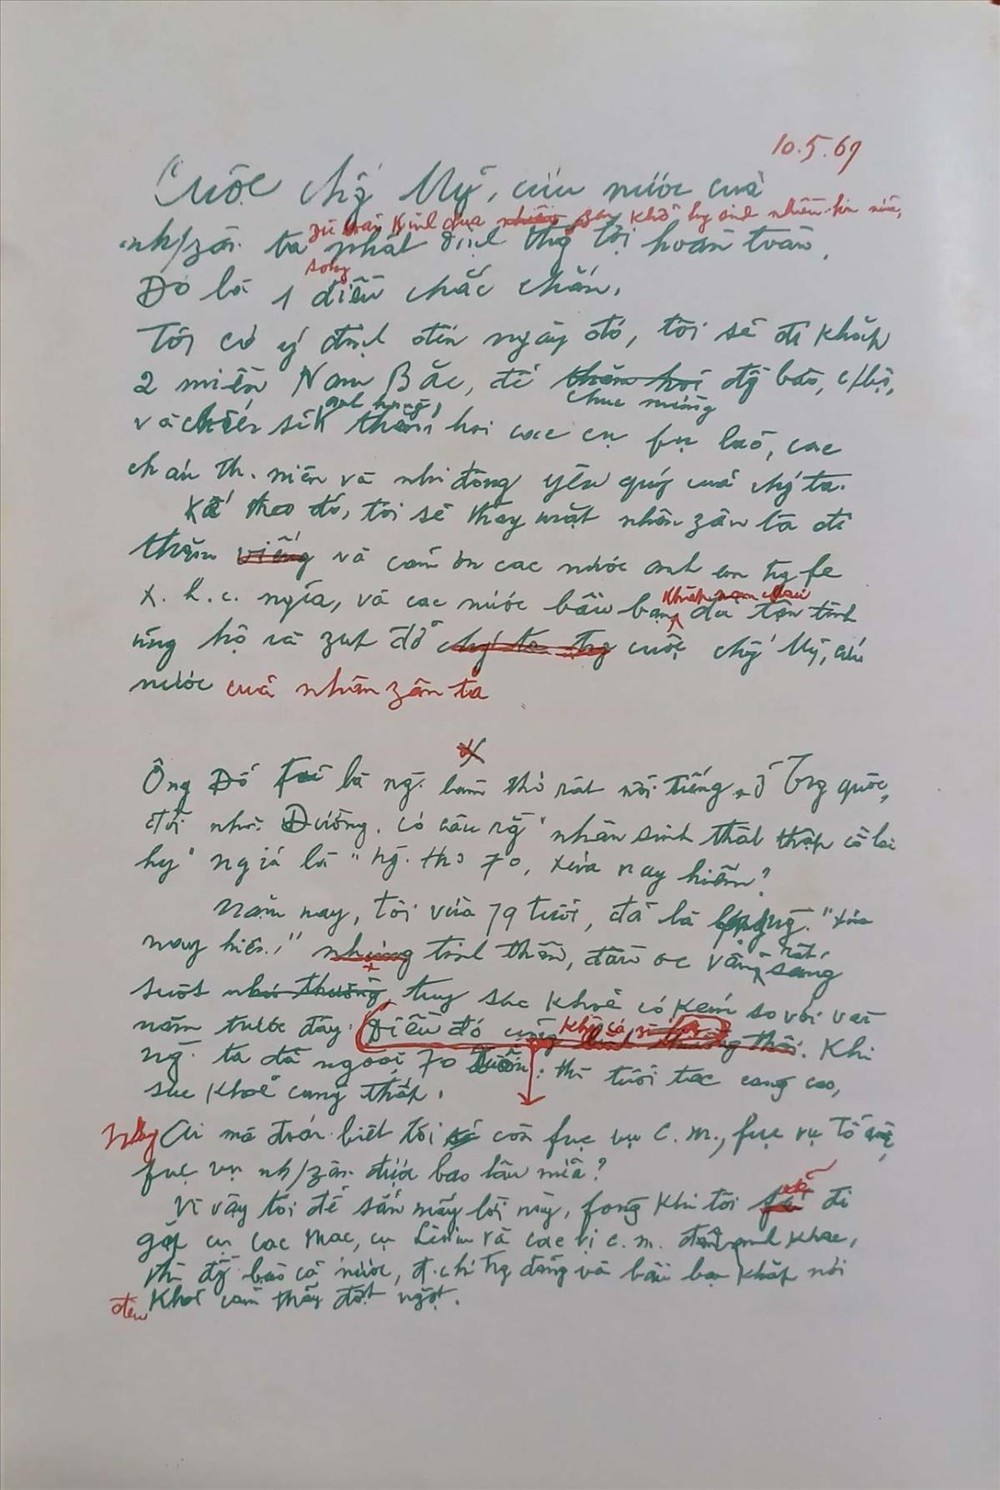 10.5.69
Cuộc chố́g Mỹ, cứu nước của
zù fải kinh qua nhiều zan khổ hy sinh nhiều hơn nữa,
nh/zân ta nhất định thg lợi hoàn toàn.
song
Đó là 1 điều chắc chắn.
Tôi có ý định đến ngày đó, tôi sẽ đi khắp
2 miền Nam Bắc, để thăm hỏi đg bào, c/bộ,
chúc mừng
anh hùng,
và chiến sĩ thăm hỏi các cụ fụ lão, các
cháu th. niên và nhi đồng yêu quý của chg ta.
Kế theo đó, tôi sẽ thay mặt nhân zân ta đi
thăm viếng và cảm ơn các nước anh em trg fe
x. h. c. nghĩa, và các nước bầu bạn khắp năm châu đã tận tình
ủng hộ và zúp đỡ chg ta trg cuộc chố́g Mỹ, cứu
nước của nhân zân ta
Ông Đỗ Fủ là ng. làm thơ rất nổi tiếng ở Trg quốc,
đời nhà Đường. có câu rg "nhân sinh thất thập cổ lai
hy" ngiã là "ng. thọ 70, xưa nay hiếm".
Năm nay, tôi vừa 79 tuổi, đã là ng. "xưa
nay hiếm" nhưng tinh thần, đầu óc vẫn rất sáng
suốt như thường, tuy sức khoẻ có kém so với vài
năm trước đây. Điều đó cũng không có zì. Khi
ng. ta đã ngoài 70 xuân, thì tuổi tác càng cao,
sức khoẻ càng thấp.
Nhưg Ai mà đoán biết tôi sẽ còn fục vụ c. m., fục vụ Tổ quốc,
fục vụ nh/zân được bao lâu nữa?
Vì vậy tôi để sẵn mấy lời này, fòng khi tôi sẽ đi
gặp cụ Các Mác, cụ Lênin và các vị c. m. đàn anh khác,
thì đg bào cả nước, đ. chí trg đảng và bầu bạn khắp nơi
đều khỏi cảm thấy đột ngột.